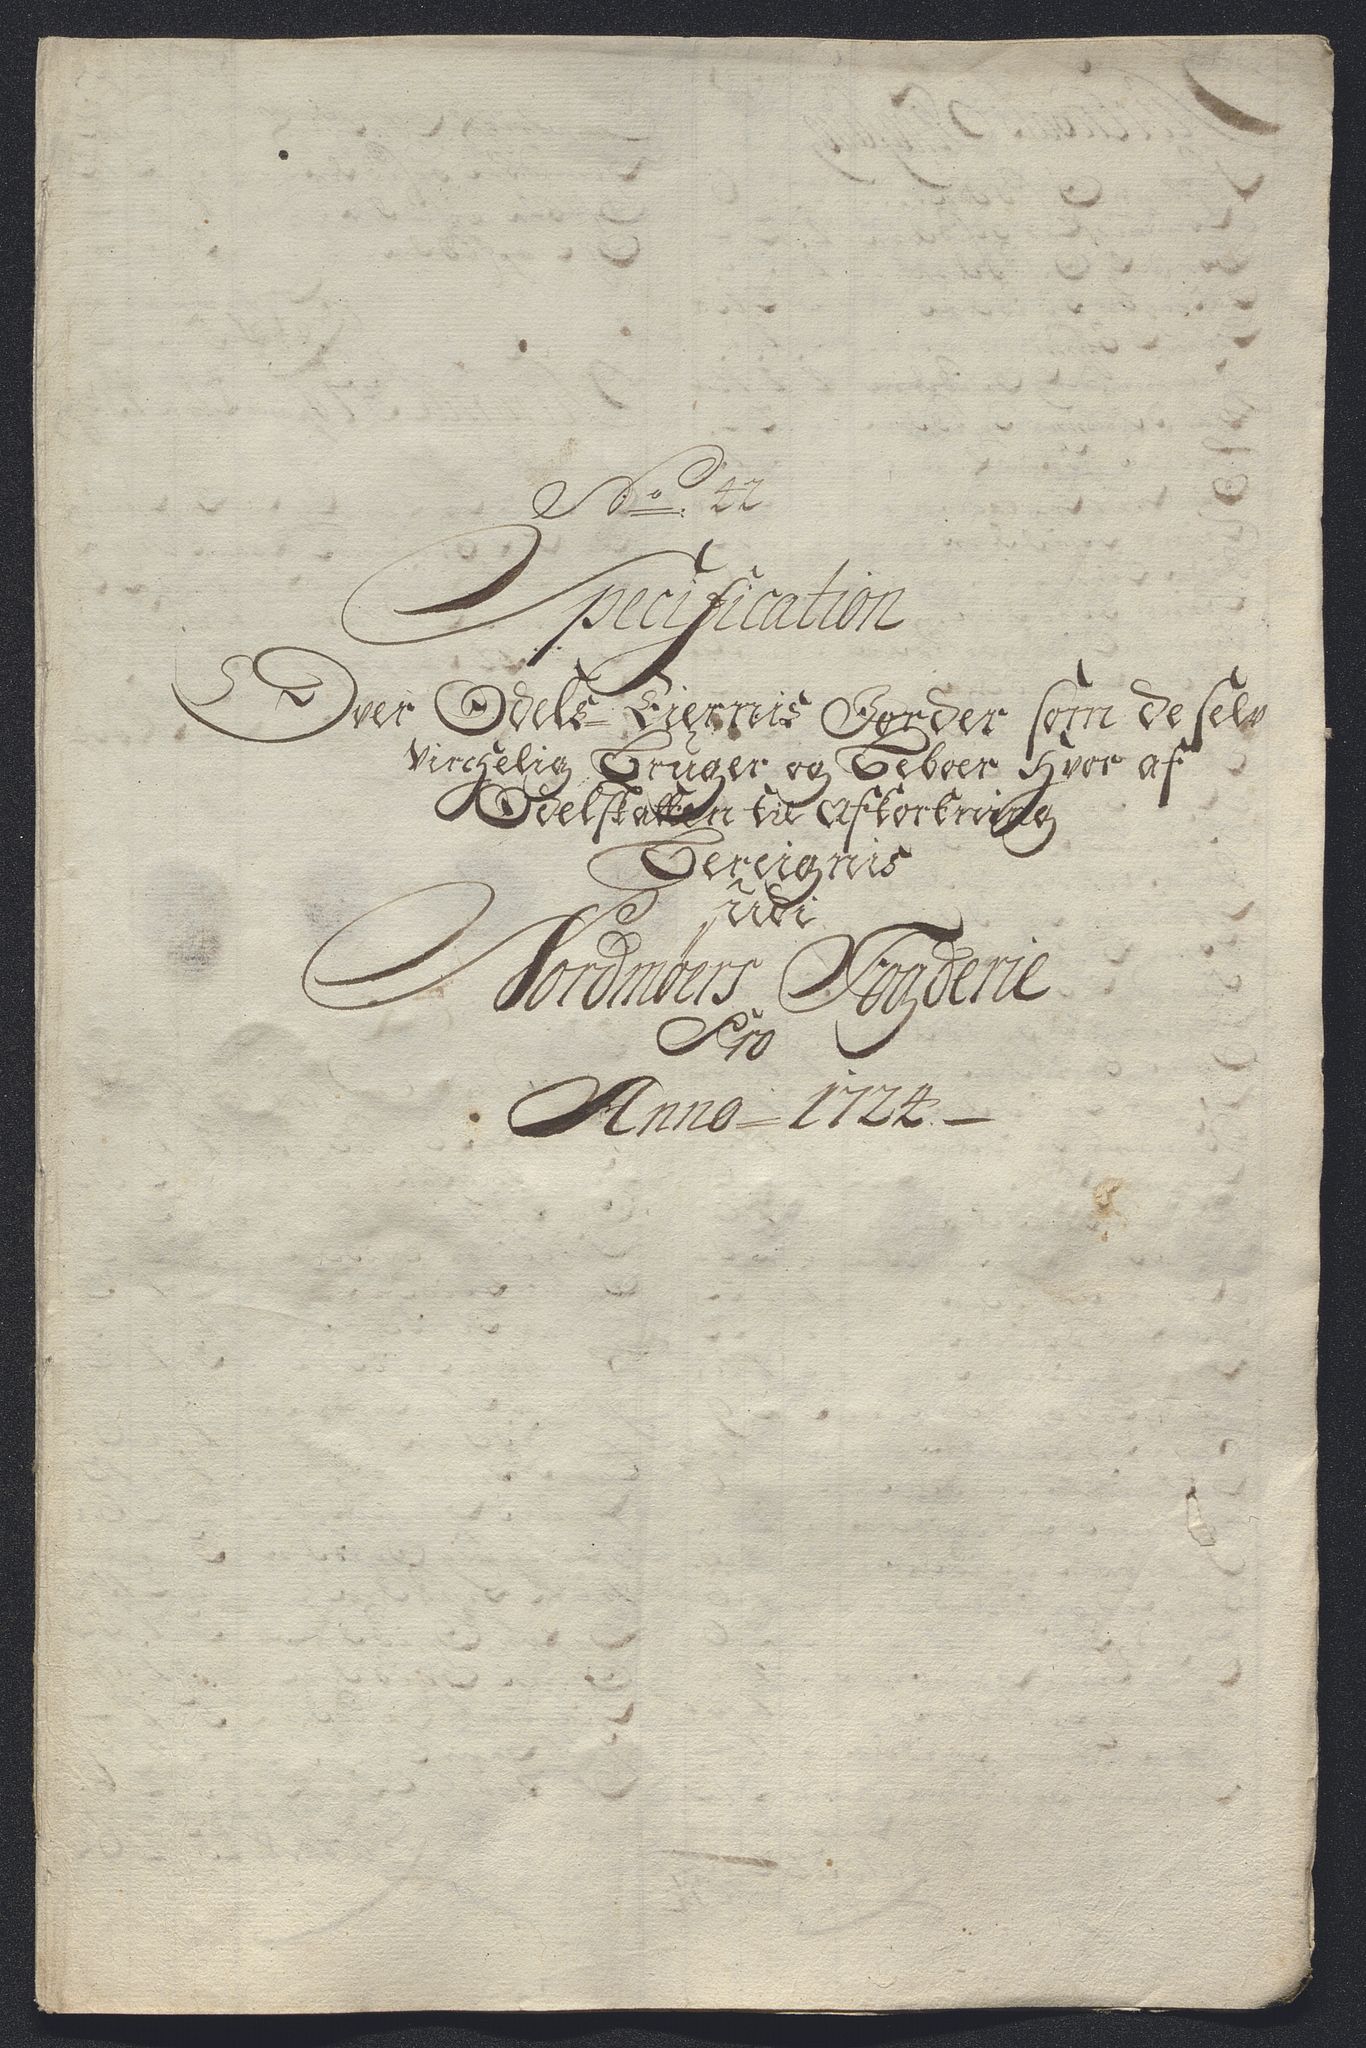 No. 22
Specification
Over Odels-Eiernis Gorder som de selv
virchelig Bruger og Beboer Hvor af
Odelskatten til Afkortning
Bereignis
udi
Nordmøers Fogderie
Pro
Anno = 1724. —